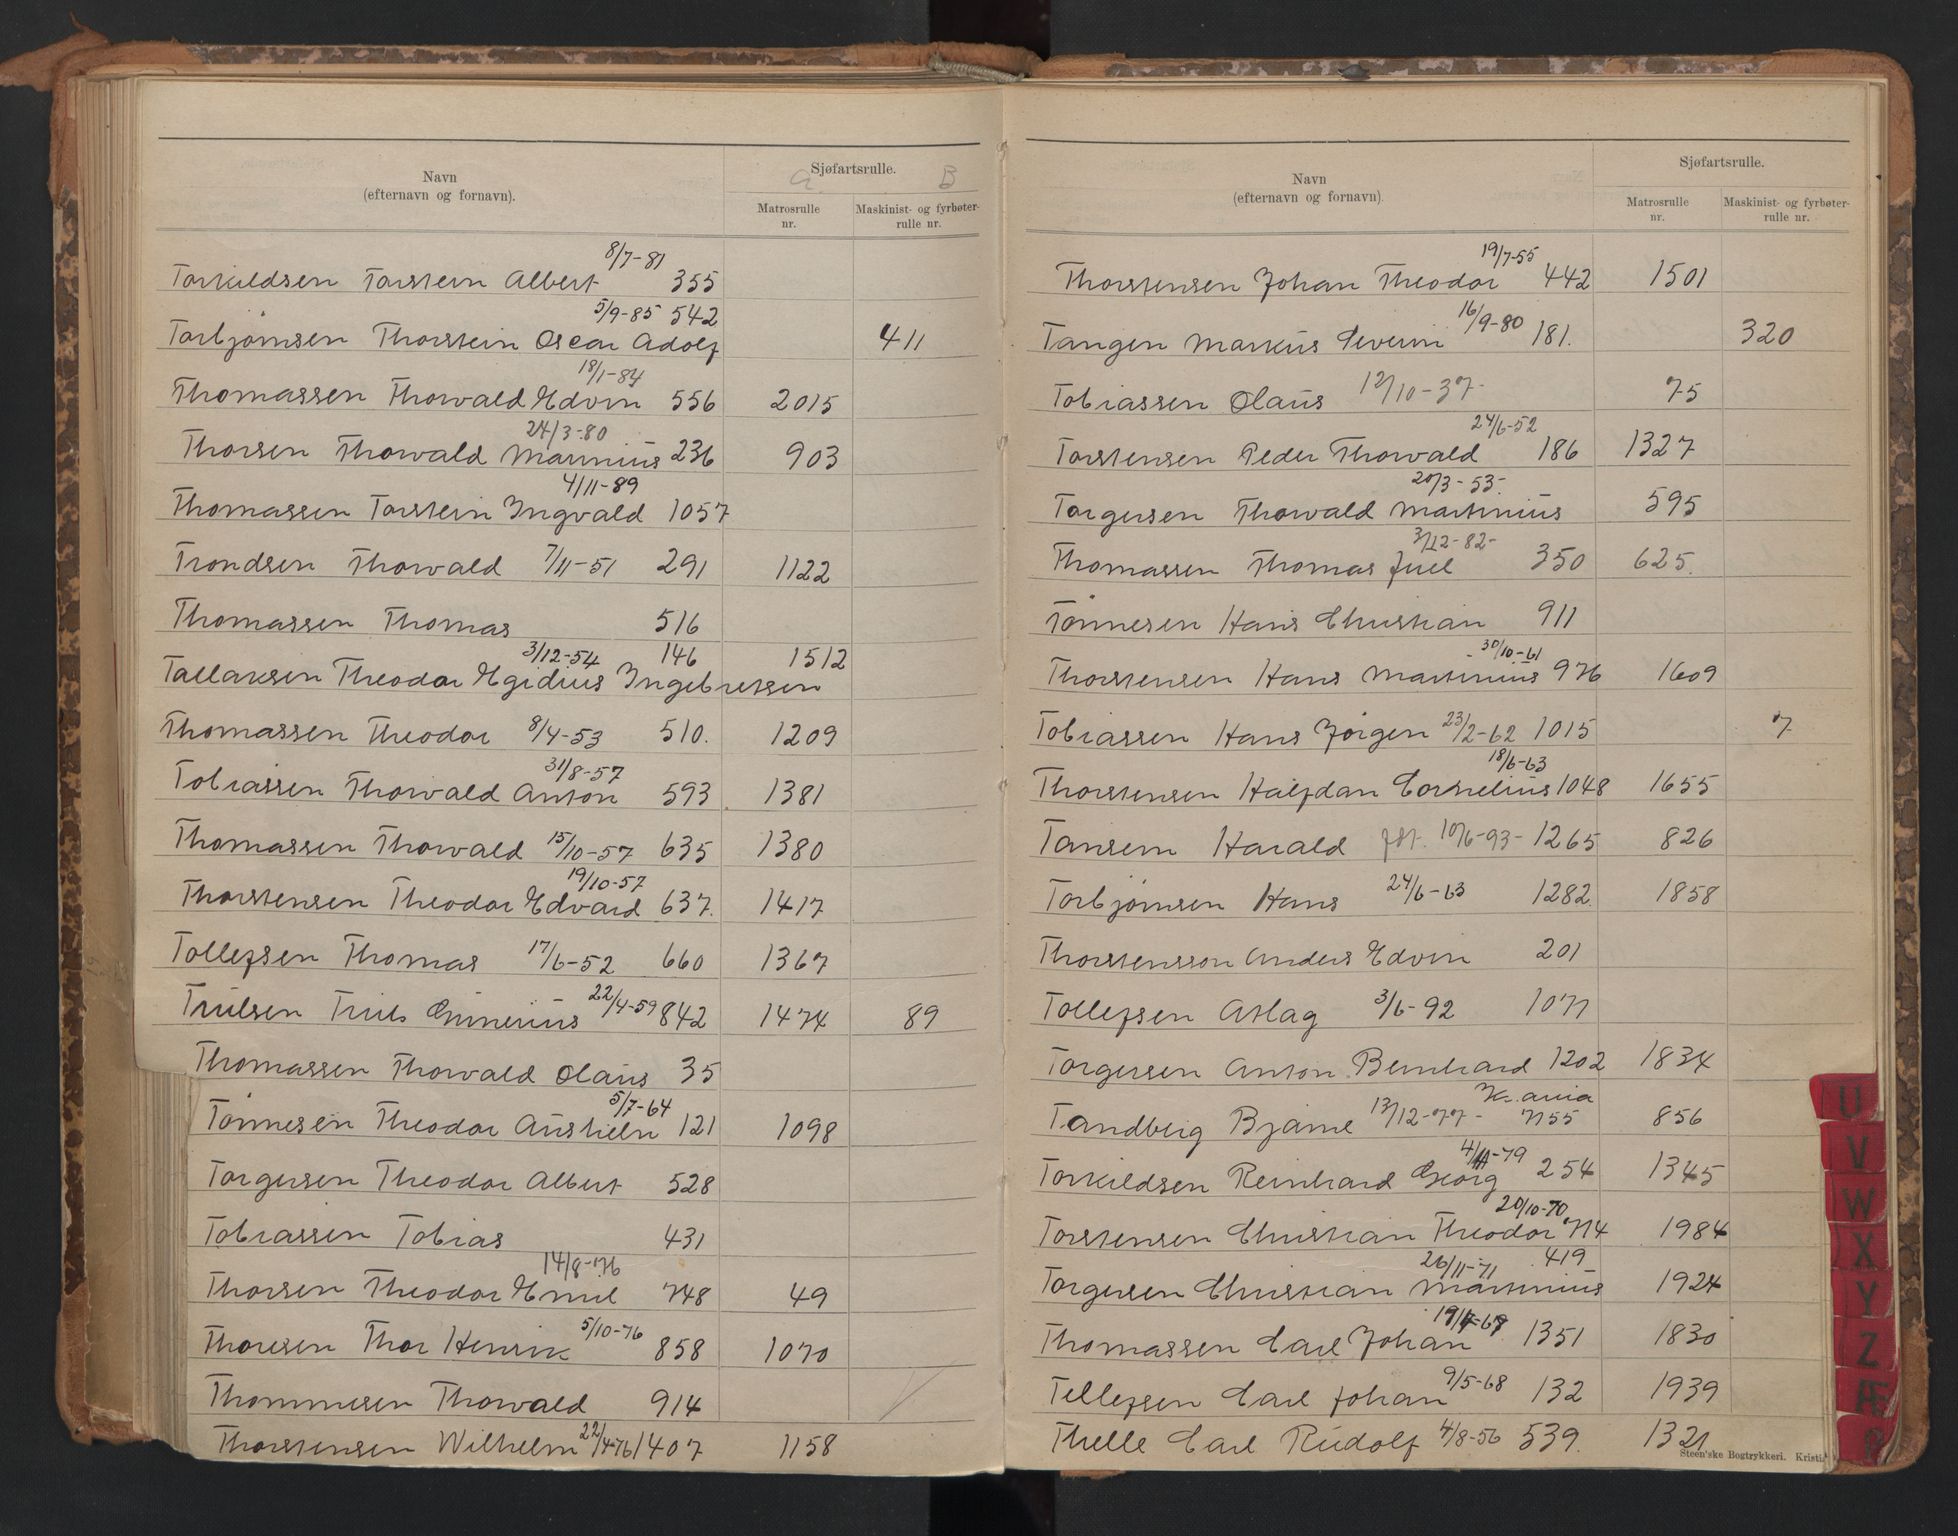 Navn
(efternavn og fornavn).
Sjøfartsrulle.
a B
Matrosrulle
nr.
Maskinist- og fyrbøter-
rulle nr.
8/7-81
Torkildsen Torstein Albert 355
5/9-85 542
Torbjørnsen Thorstein Oscar Adolf 411
18/1-84
Thomassen Thorvald Edvin 556 2015
24/3-80
Thorsen Thorvald Marinius 236 903
4/11-89
Thomassen Torstein Ingvald 1057
Trondsen Thorvald 7/11-51 291 1122
Thomassen Thomas 516
3/12-54 146 1512
Tallaksen Theodor Egidius Ingebretsen
Thomassen Theodor 8/4-53 510. 1209
31/8-57
Tobiassen Thorvald Anton 593 1381
Thomassen Thorvald 15/10-57 635 1380
19/10-57
Thorstensen Theodor Edvard 637. 1417
Tollefsen Thomas 17/6-52 660 1367
Trulsen Truls Gunerius 22/4-59 842 1474 89
Thomassen Thorvald Olaus 35
5/7-64
Tønnesen Theodor 121 1098
Torgersen Theodor Albert 528
Tobiassen Tobias 431
14/8-76
Thorsen Theodor Emil 748 49
5/10-76
Thoresen Thor Henrik 858 1070
Thommesen Thorvald 914
Thorstensen Wilhelm 22/4-76 1407 1158
Navn
(efternavn og fornavn).
Sjøfartsrulle.
Matrosrulle
nr.
Maskinist- og fyrbøter-
rulle nr.
19/7-55
Thorstensen Johan Theodor 442 1501
16/9-80
Tangen Markus Severin 181. 320
Tobiassen Olaus 12/10-37- 75
24/6-52
Torstensen Peder Thorvald 186 1327
20/3-53-
Torgersen Thorvald Martinius 595
3/12-82-
Thomassen Thomas Juel 350 625.
Tønnesen Hans Christian 911
30/10-61
Thorstensen Hans Martinius 976 1609
Tobiassen Hans Jørgen 23/2-62 1015 7
18/6-63
Thorstensen Halfdan Cornelius 1048 1655
Tansem Harald 10/6-93- 1265 826
Torbjørnsen Hans 24/6-63 1282. 1858
Thorstensson Anders Edvin 201
Tollefsen Aslag 3/6-92 1077
Torgersen Anton Bernhard 1202 1834
Kr.ania
Tandberg Bjarne 13/12-77- 7155 856
4/11-79
Torkildsen Reinhard Georg 254 1345
20/10-70
Torstensen Christian Theodor 714 1984
26/11-71 419
Torgersen Christian Martinius 1924
Thomassen Carl Johan 1351 1830
9/5-68
Tellefsen Carl Johan 132 1939
Thelle Carl Rudolf 4/8-56 539. 1321
Steen'ske Bogtrykkeri. Kristi
U
V
W
X
Y
Z
Æ